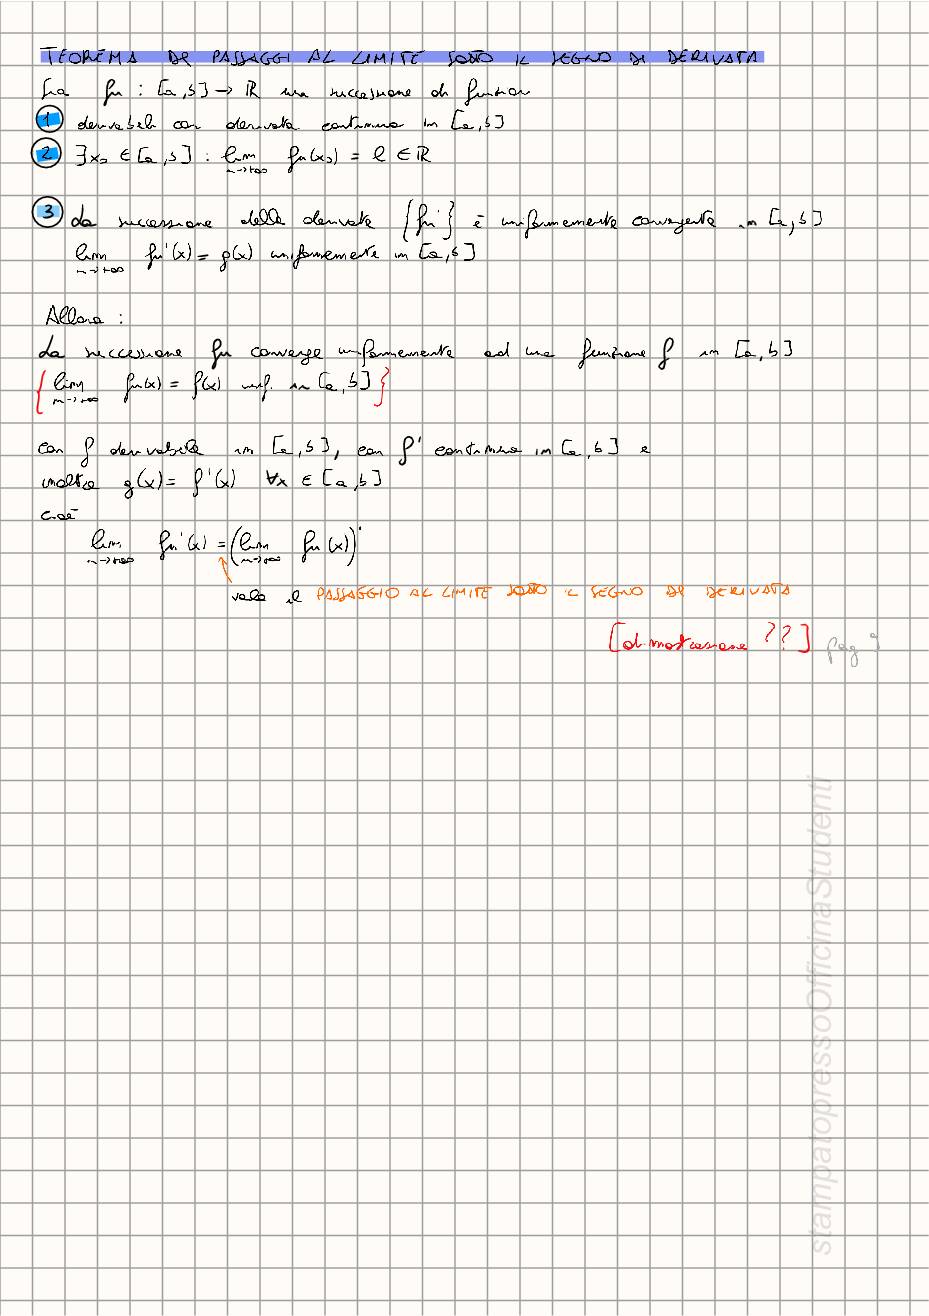 TEOREMA DI PASSAGGI AL LIMITE SOTTO IL SEGNO DI DERIVATA
Sia fn : [a,b] → ℝ una successione di funzioni
① derivabili con derivata continua in [a,b]
② ∃x₀ ∈ [a,b] : lim n→+∞ fn(x₀) = l ∈ ℝ
③ La successione delle derivate {fn'} è uniformemente convergente in [a,b]
lim n→+∞ fn'(x) = g(x) uniformemente in [a,b]
Allora :
La successione fn converge uniformemente ad una funzione f in [a,b]
{ lim n→+∞ fn(x) = f(x) unif. in [a,b] }
con f derivabile in [a,b], con f' continua in [a,b] e
inoltre g(x) = f'(x) ∀x ∈ [a,b]
cioè
lim n→+∞ fn'(x) = (lim n→+∞ fn(x))'
vale il PASSAGGIO AL LIMITE SOTTO IL SEGNO DI DERIVATA
[dimostrazione ??] pag
stampatopressoOfficinaStudenti